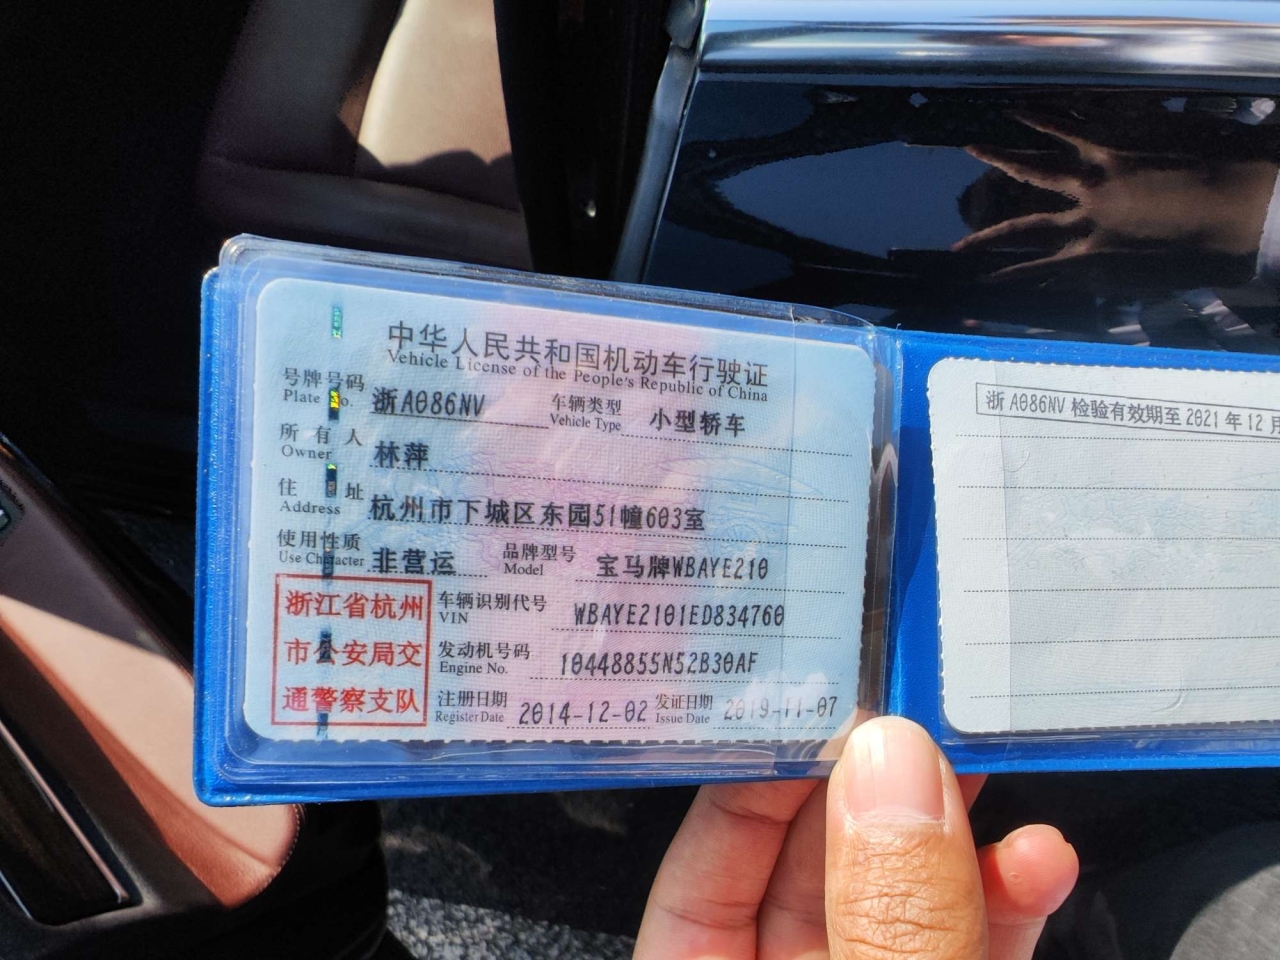 中华人民共和国机动车行驶证
Vehicle License of the People's Republic of China
号牌号码 浙A086NV 车辆类型 小型轿车
Plate No. Vehicle Type
所有人 林萍
Owner
住址 杭州市下城区东园51幢603室
Address
使用性质 非营运 品牌型号 宝马牌WBAYE210
Use Character Model
浙江省杭州
市公安局交
通警察支队
车辆识别代号 WBAYE2101ED834760
VIN
发动机号码 10448855N52B30AF
Engine No.
注册日期 2014-12-02 发证日期 2019-11-07
Register Date Issue Date
浙A086NV检验有效期至2021年12月